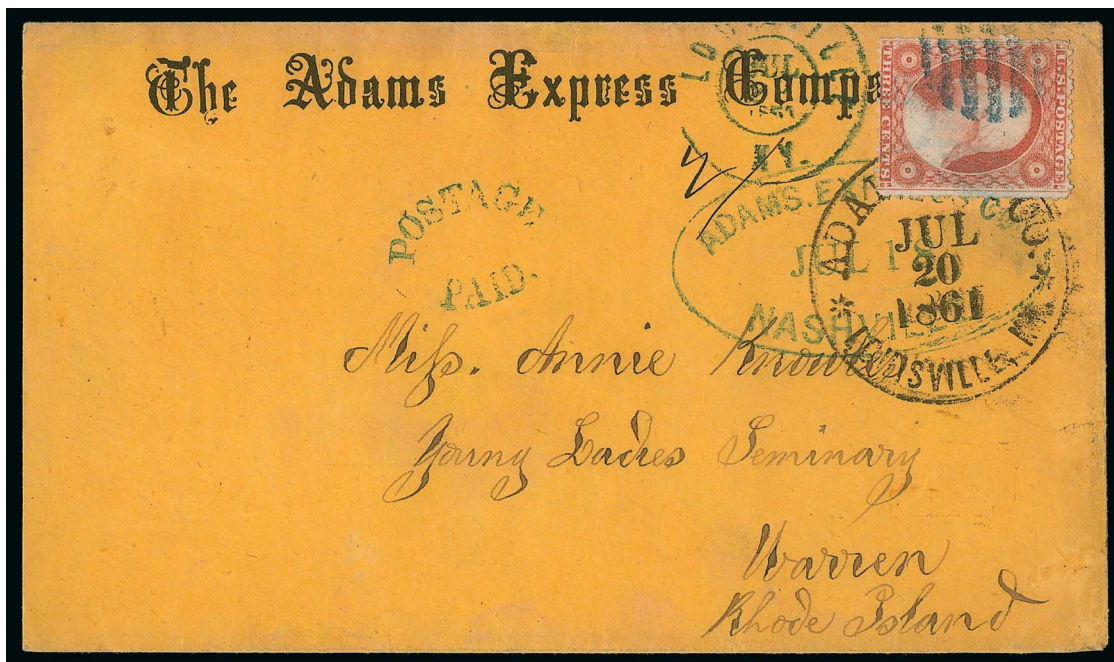 The Adams Express Compa
LOUISVILLE
JUL
KY.
U.S. POSTAGE
THREE CENTS
POSTAGE
PAID.
ADAMS. EX
CO
JUL 18
NASHVILLE
ADA
JUL
20
1861
LOUISVILLE, KY.
Miss. Annie Knowles
Young Ladies Seminary
Warren
Rhode Island